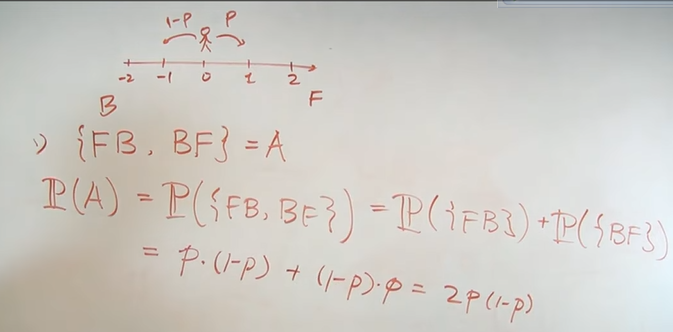 1-P P
-2 -1 0 1 2
B F
1) {FB, BF} = A
ℙ(A) = ℙ({FB, BF}) = ℙ({FB}) + ℙ({BF})
= p·(1-p) + (1-p)·p = 2p(1-p)